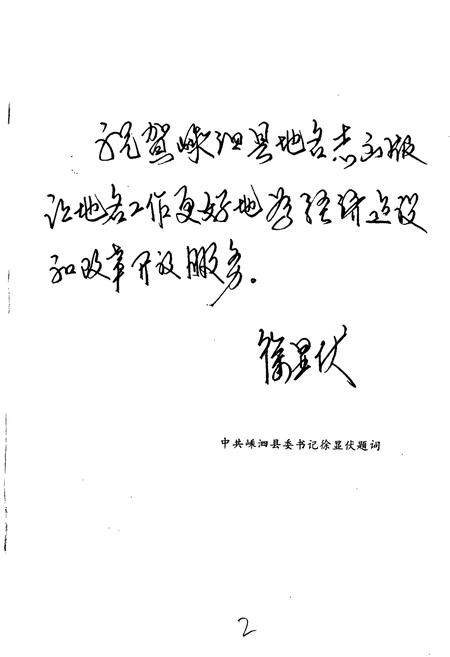 祝贺嵊泗县地名志出版
让地名工作更好地为经济建设
和改革开放服务。
徐显伏
中共嵊泗县委书记徐显伏题词
2